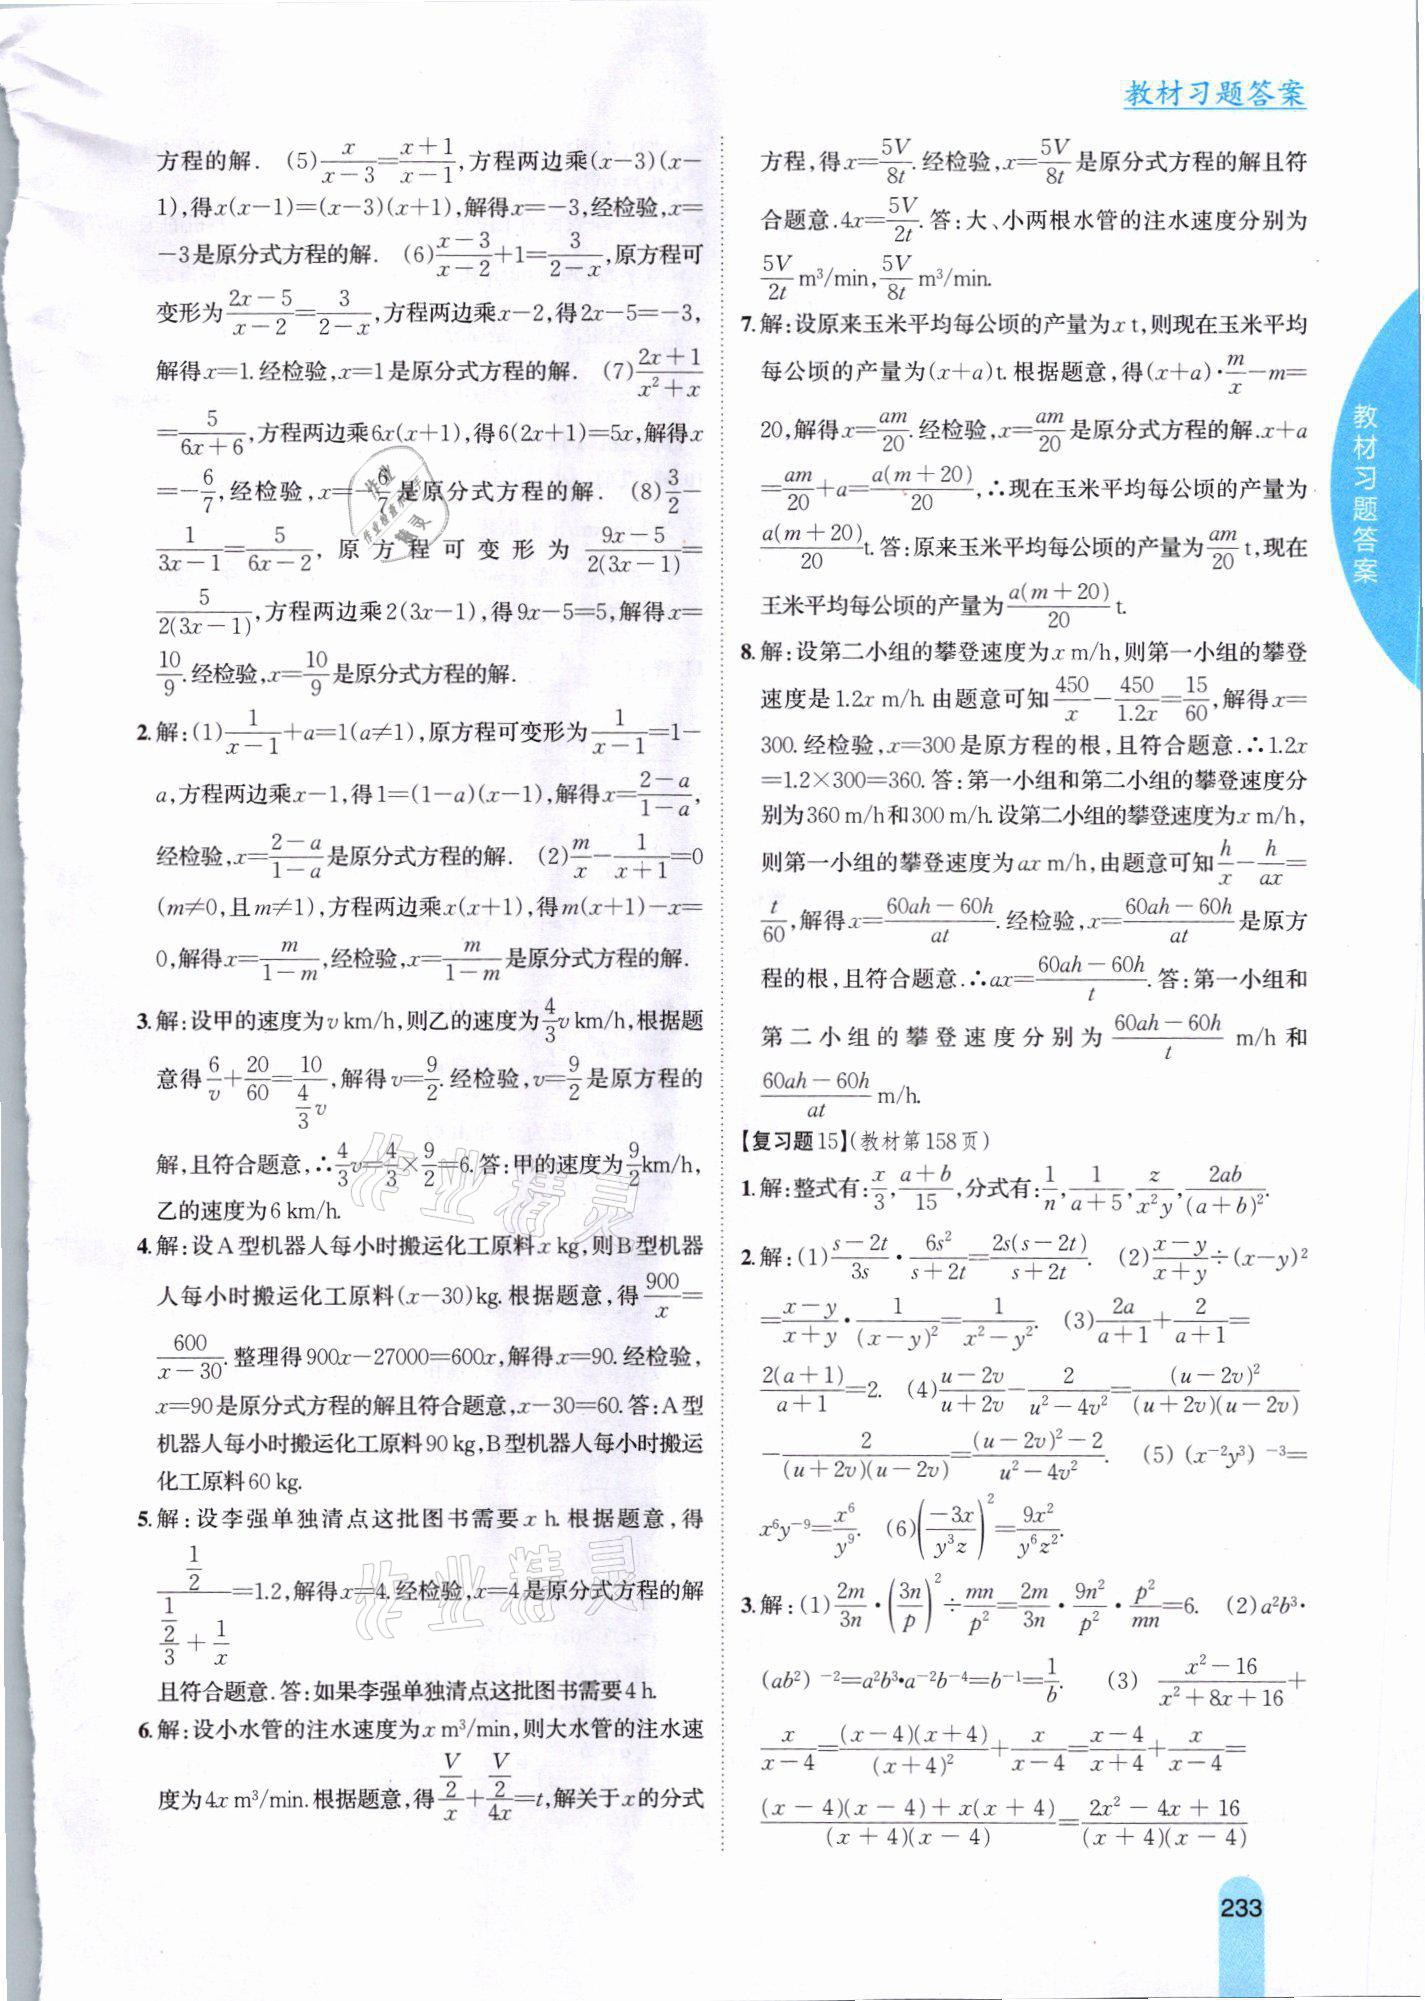 教材习题答案
方程的解. (5)x/(x-3)=(x+1)/(x-1),方程两边乘(x-3)(x-
1),得x(x-1)=(x-3)(x+1),解得x=-3,经检验,x=
-3是原分式方程的解. (6)(x-3)/(x-2)+1=3/(2-x),原方程可
变形为(2x-5)/(x-2)=3/(2-x),方程两边乘x-2,得2x-5=-3,
解得x=1.经检验,x=1是原分式方程的解. (7)(2x+1)/(x²+x)
=5/(6x+6),方程两边乘6x(x+1),得6(2x+1)=5x,解得x
=-6/7,经检验,x=-6/7是原分式方程的解. (8)3/2-
1/(3x-1)=5/(6x-2),原方程可变形为(9x-5)/(2(3x-1))=
5/(2(3x-1)),方程两边乘2(3x-1),得9x-5=5,解得x=
10/9.经检验,x=10/9是原分式方程的解.
2.解:(1)1/(x-1)+a=1(a≠1),原方程可变形为1/(x-1)=1-
a,方程两边乘x-1,得1=(1-a)(x-1),解得x=(2-a)/(1-a),
经检验,x=(2-a)/(1-a)是原分式方程的解. (2)m/x-1/(x+1)=0
(m≠0,且m≠1),方程两边乘x(x+1),得m(x+1)-x=
0,解得x=m/(1-m),经检验,x=m/(1-m)是原分式方程的解.
3.解:设甲的速度为v km/h,则乙的速度为4/3v km/h,根据题
意得6/v+20/60=10/(4/3v),解得v=9/2.经检验,v=9/2是原方程的
解,且符合题意,∴4/3v=4/3×9/2=6.答:甲的速度为9/2km/h,
乙的速度为6 km/h.
4.解:设A型机器人每小时搬运化工原料x kg,则B型机器
人每小时搬运化工原料(x-30)kg.根据题意,得900/x=
600/(x-30).整理得900x-27000=600x,解得x=90.经检验,
x=90是原分式方程的解且符合题意,x-30=60.答:A型
机器人每小时搬运化工原料90 kg,B型机器人每小时搬运
化工原料60 kg.
5.解:设李强单独清点这批图书需要x h.根据题意,得
(1/2)/((1/2)/3+1/x)=1.2,解得x=4.经检验,x=4是原分式方程的解
且符合题意.答:如果李强单独清点这批图书需要4 h.
6.解:设小水管的注水速度为x m³/min,则大水管的注水速
度为4x m³/min.根据题意,得(V/2)/x+(V/2)/(4x)=t,解关于x的分式
方程,得x=5V/8t.经检验,x=5V/8t是原分式方程的解且符
合题意.4x=5V/2t.答:大、小两根水管的注水速度分别为
5V/2t m³/min,5V/8t m³/min.
7.解:设原来玉米平均每公顷的产量为x t,则现在玉米平均
每公顷的产量为(x+a)t.根据题意,得(x+a)·m/x-m=
20,解得x=am/20.经检验,x=am/20是原分式方程的解.x+a
=am/20+a=a(m+20)/20,∴现在玉米平均每公顷的产量为
a(m+20)/20t.答:原来玉米平均每公顷的产量为am/20 t,现在
玉米平均每公顷的产量为a(m+20)/20 t.
8.解:设第二小组的攀登速度为x m/h,则第一小组的攀登
速度是1.2x m/h.由题意可知450/x-450/1.2x=15/60,解得x=
300.经检验,x=300是原方程的根,且符合题意.∴1.2x
=1.2×300=360.答:第一小组和第二小组的攀登速度分
别为360 m/h和300 m/h.设第二小组的攀登速度为x m/h,
则第一小组的攀登速度为ax m/h,由题意可知h/x-h/ax=
t/60,解得x=(60ah-60h)/at.经检验,x=(60ah-60h)/at是原方
程的根,且符合题意.∴ax=(60ah-60h)/t.答:第一小组和
第二小组的攀登速度分别为(60ah-60h)/t m/h和
(60ah-60h)/at m/h.
【复习题15】(教材第158页)
1.解:整式有:x/3,(a+b)/15,分式有:1/n,1/(a+5),z/(x²y),2ab/(a+b)².
2.解:(1)(s-2t)/3s·6s²/(s+2t)=2s(s-2t)/(s+2t). (2)(x-y)/(x+y)÷(x-y)²
=(x-y)/(x+y)·1/(x-y)²=1/(x²-y²). (3)2a/(a+1)+2/(a+1)=
2(a+1)/(a+1)=2. (4)(u-2v)/(u+2v)-2/(u²-4v²)=(u-2v)²/((u+2v)(u-2v))
-2/((u+2v)(u-2v))=((u-2v)²-2)/(u²-4v²). (5)(x⁻²y³)⁻³=
x⁶y⁻⁹=x⁶/y⁹. (6)(-3x/(y³z))²=9x²/(y⁶z²).
3.解:(1)2m/3n·(3n/p)²÷mn/p²=2m/3n·9n²/p²·p²/mn=6. (2)a²b³·
(ab²)⁻²=a²b³·a⁻²b⁻⁴=b⁻¹=1/b. (3)(x²-16)/(x²+8x+16)+
x/(x-4)=(x-4)(x+4)/(x+4)²+x/(x-4)=(x-4)/(x+4)+x/(x-4)=
((x-4)(x-4)+x(x+4))/((x+4)(x-4))=(2x²-4x+16)/((x+4)(x-4))
教材习题答案
233
作业精灵
作业精灵